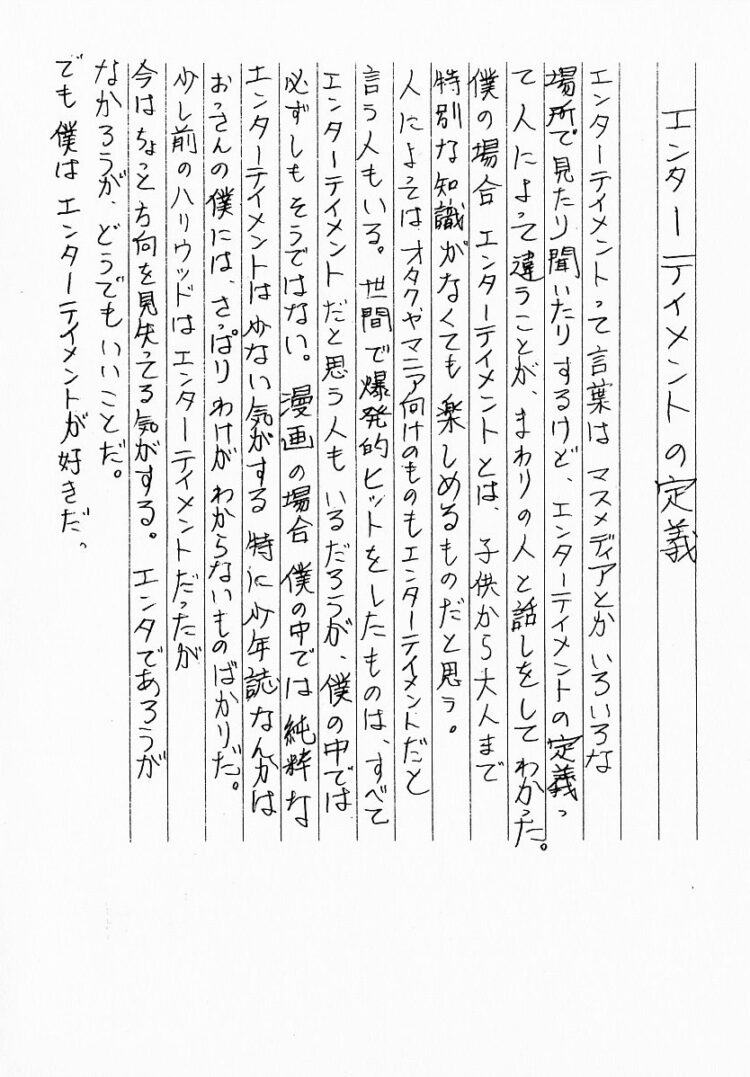 エンターテイメントの定義
エンターテイメントって言葉は マスメディアとか いろいろな
場所で見たり聞いたりするけど、エンターテイメントの定義っ
て人によって違うことが、まわりの人と話しをしてわかった。
僕の場合 エンターテイメントとは、子供から大人まで
特別な知識がなくても楽しめるものだと思う。
人によってはオタクやマニア向けのものもエンターテイメントだと
言う人もいる。世間で爆発的ヒットをしたものは、すべて
エンターテイメントだと思う人もいるだろうが、僕の中では
必ずしもそうではない。漫画の場合 僕の中では純粋な
エンターテイメントは少ない気がする 特に少年誌なんかは
おっさんの僕には、さっぱりわけがわからないものばかりだ。
少し前のハリウッドはエンターテイメントだったが
今はちょっと方向を見失ってる気がする。エンタであろうが
なかろうが、どうでもいいことだ。
でも僕はエンターテイメントが好きだ。